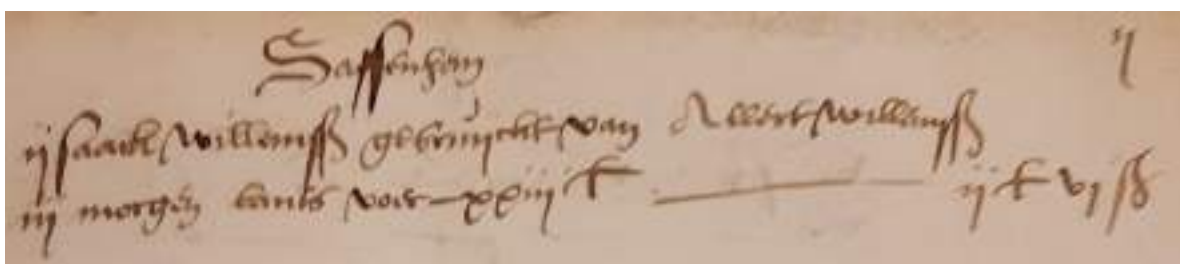 Sassenhem
ijsaack willemss gebruyckt van Allert willemss
iij morgen lants voer xxiiij £ ij £ vj ss